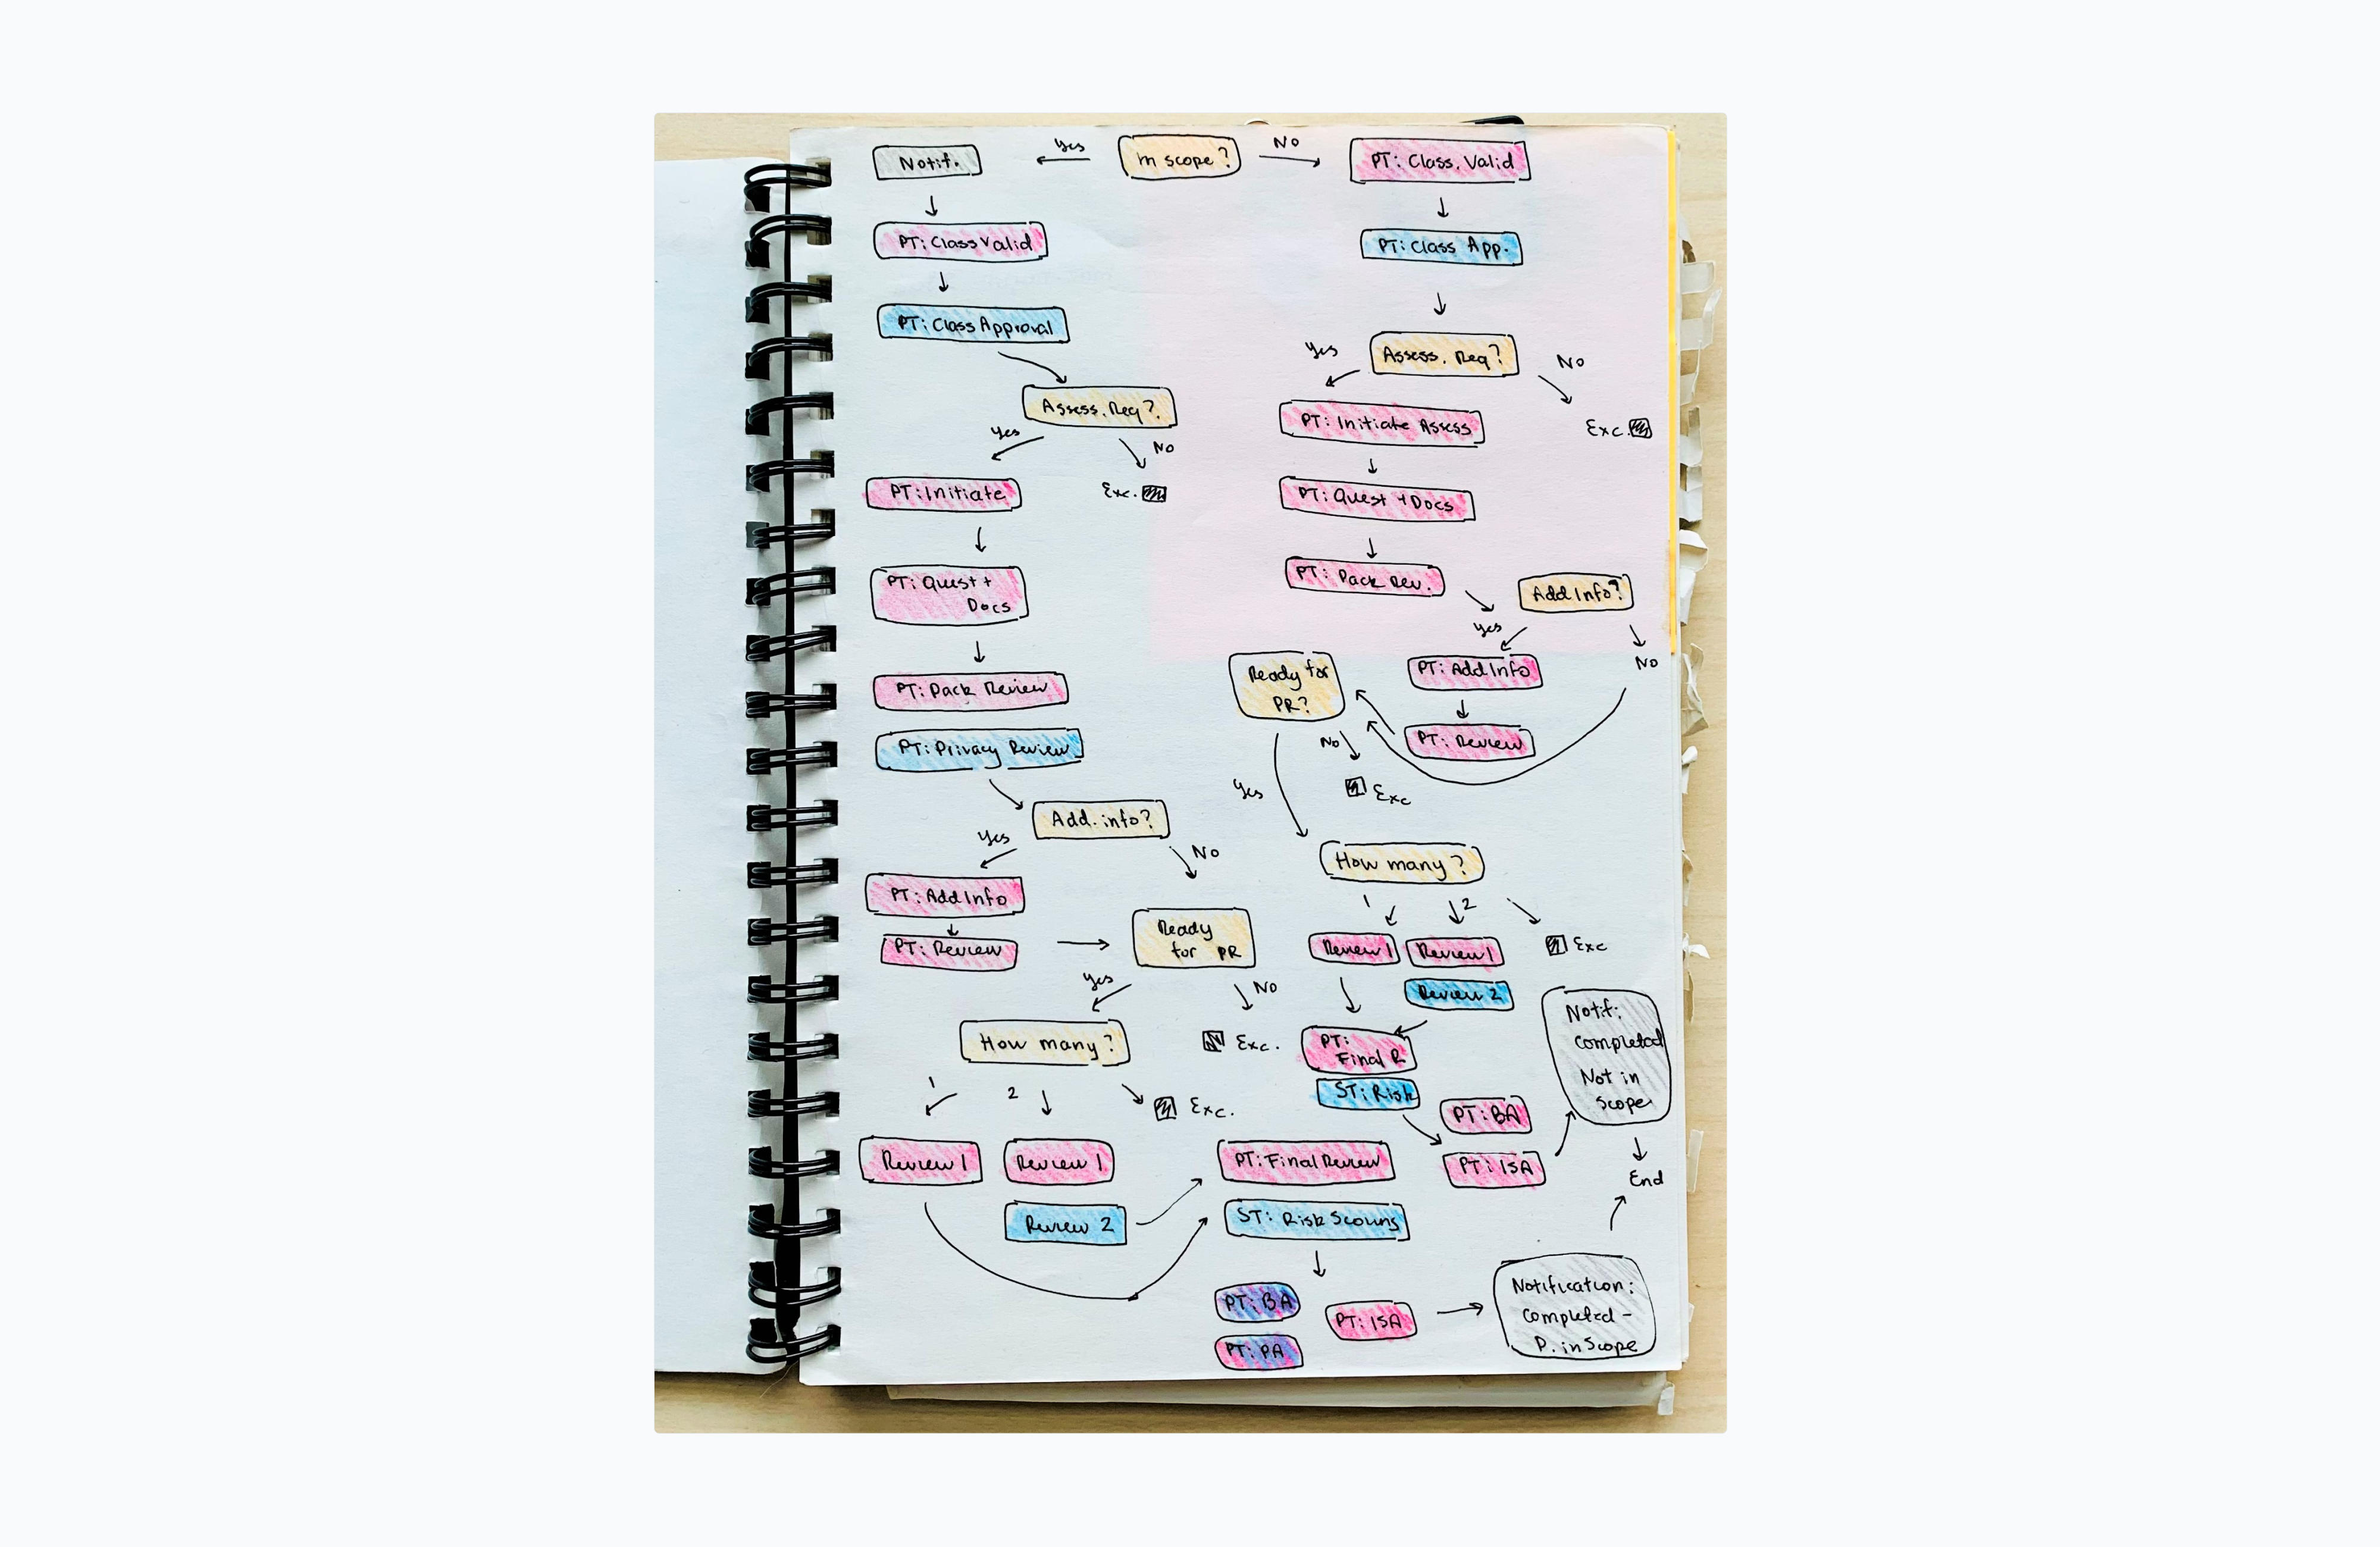 Notif.
Yes
In scope?
NO
PT: Class. Valid
PT: Class Valid
PT: Class App.
PT: Class Approval
Assess. Req?
Yes
NO
Exc.
PT: Initiate Assess
PT: Quest + Docs
PT: Pack Rev.
Add Info?
Yes
NO
PT: Add Info
PT: Review
Ready for
PR?
NO
Exc
Yes
How many?
1
2
Exc
Review 1
Review 1
Review 2
PT:
Final R
ST: Risk
PT: BA
PT: ISA
Notif:
Completed
Not in
Scope
End
Assess. Req?
Yes
NO
Exc.
PT: Initiate
PT: Quest +
Docs
PT: Pack Review
PT: Privacy Review
Add. info?
Yes
NO
PT: Add Info
PT: Review
Ready
for PR
Yes
NO
Exc.
How many?
1
2
Exc.
Review 1
Review 1
Review 2
PT: Final Review
ST: Risk Scoring
PT: BA
PT: PA
PT: ISA
Notification:
Completed -
P. in Scope